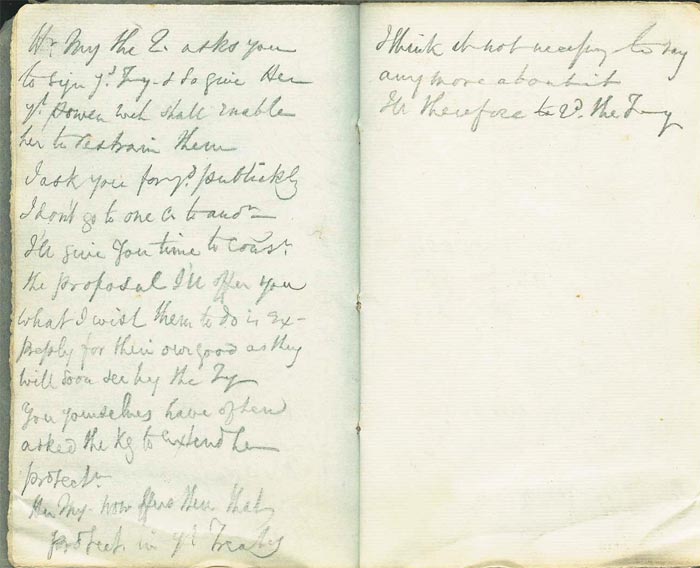 Hr. My the Q. asks you
to sign yt. Ty. & so give Her
yt. power wch shall enable
her to restrain them
I ask you for yt. publickly
I don't go to one C. to anor.
I'll give you time to consr.
the proposal I'll offer you
what I wish them to do is ex-
pressly for their own good as they
will soon see by the Ty
You yourselves have often
asked the Kg to extend her
protectn.
Her My. now offers them that
protect. in yt. Treaty
I think it not necessary to say
any more about it
Ill therefore to rd. the Ty